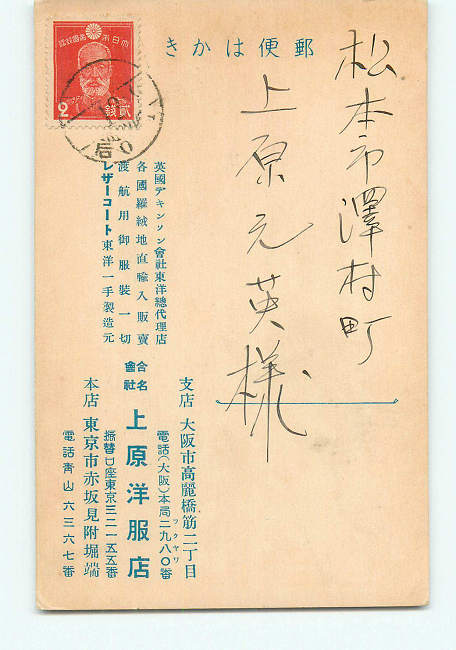 郵便はかき
松本市澤村町
上原元英様
大日本帝國郵便
2 貳錢
英國デキンソン會社東洋總代理店
各國羅絨地直輸入販賣
渡航用御服裝一切
レザーコート東洋一手製造元
合名會社 上原洋服店
支店 大阪市高麗橋筋二丁目
電話(大阪)本局二九八〇番
フクヤワ
振替口座東京三二一五五番
本店 東京市赤坂見附堀端
電話靑山六三六七番